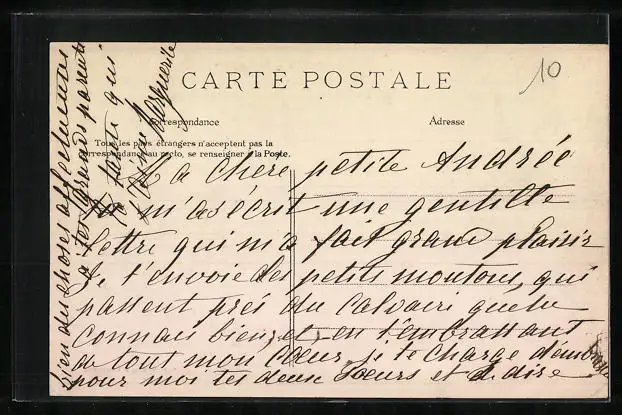 10
CARTE POSTALE
Correspondance
Adresse
Tous les pays étrangers n'acceptent pas la
correspondance au recto, se renseigner à la Poste.
Ma chère petite Andrée
Tu m'as écrit une gentille
lettre qui m'a fait grand plaisir
Je t'envoie des petits moutons, qui
passent près du Calvaire que tu
connais bien, et en t'embrassant
de tout mon Cœur, je te charge d'embrasser
pour moi tes deux Sœurs et de dire
bien des choses affectueuses
à tes Grands parents
ta tante qui
t'aime
Marguerite